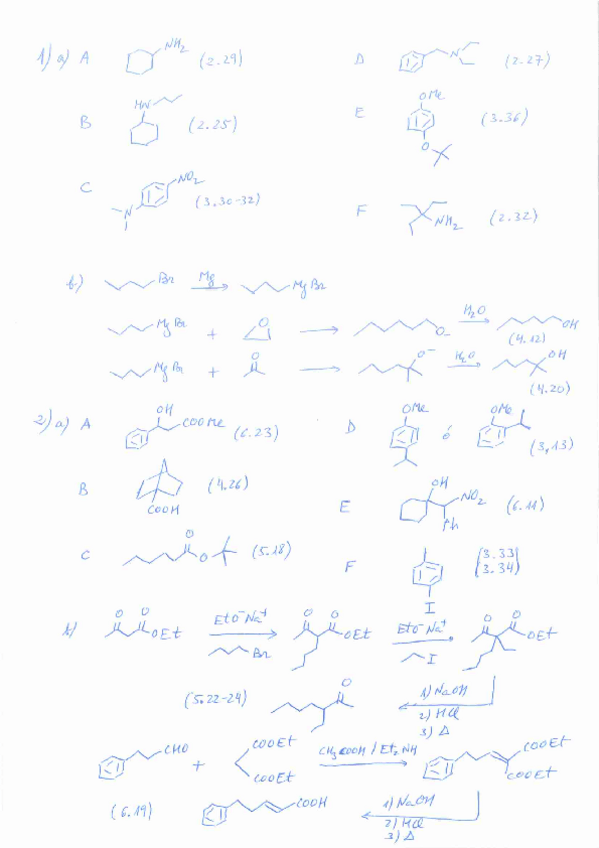 1) a) A NH2 (2.29) D N (2.27)
B HN (2.25) E OMe O (3.36)
C N NO2 (3.30-32) F NH2 (2.32)
b) Br Mg MgBr
MgBr + O O- H2O OH (4.12)
MgBr + O O- H2O OH (4.20)
2) a) A OH COOMe (6.23) D OMe ó OMe (3,13)
B COOH (4.26) E OH NO2 Ph (6.11)
C O O (5.18) F I (3.33 3.34)
b) O O OEt EtO-Na+ Br O O OEt EtO-Na+ I O O OEt
(5.22-24) O 1) NaOH
2) HCl
3) Δ
CHO + COOEt COOEt CH3COOH / Et2NH COOEt COOEt
(6.19) COOH 1) NaOH
2) HCl
3) Δ